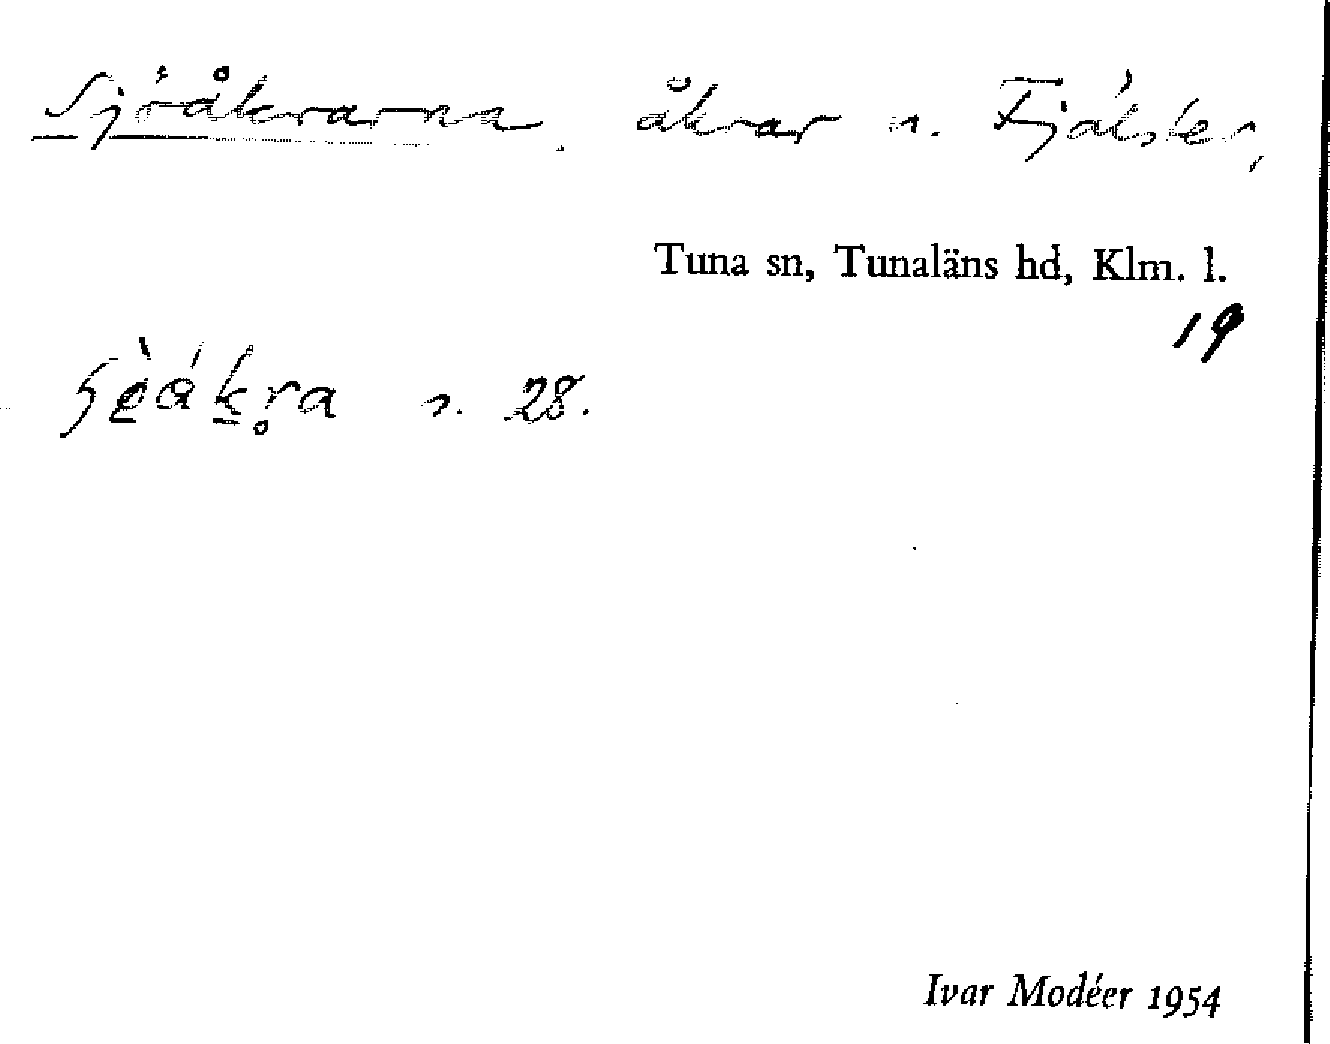 Sjöåkrarna. åkrar n. Fjälster,
Tuna sn, Tunaläns hd, Klm. l.
19
s. 28.
Ivar Modéer 1954